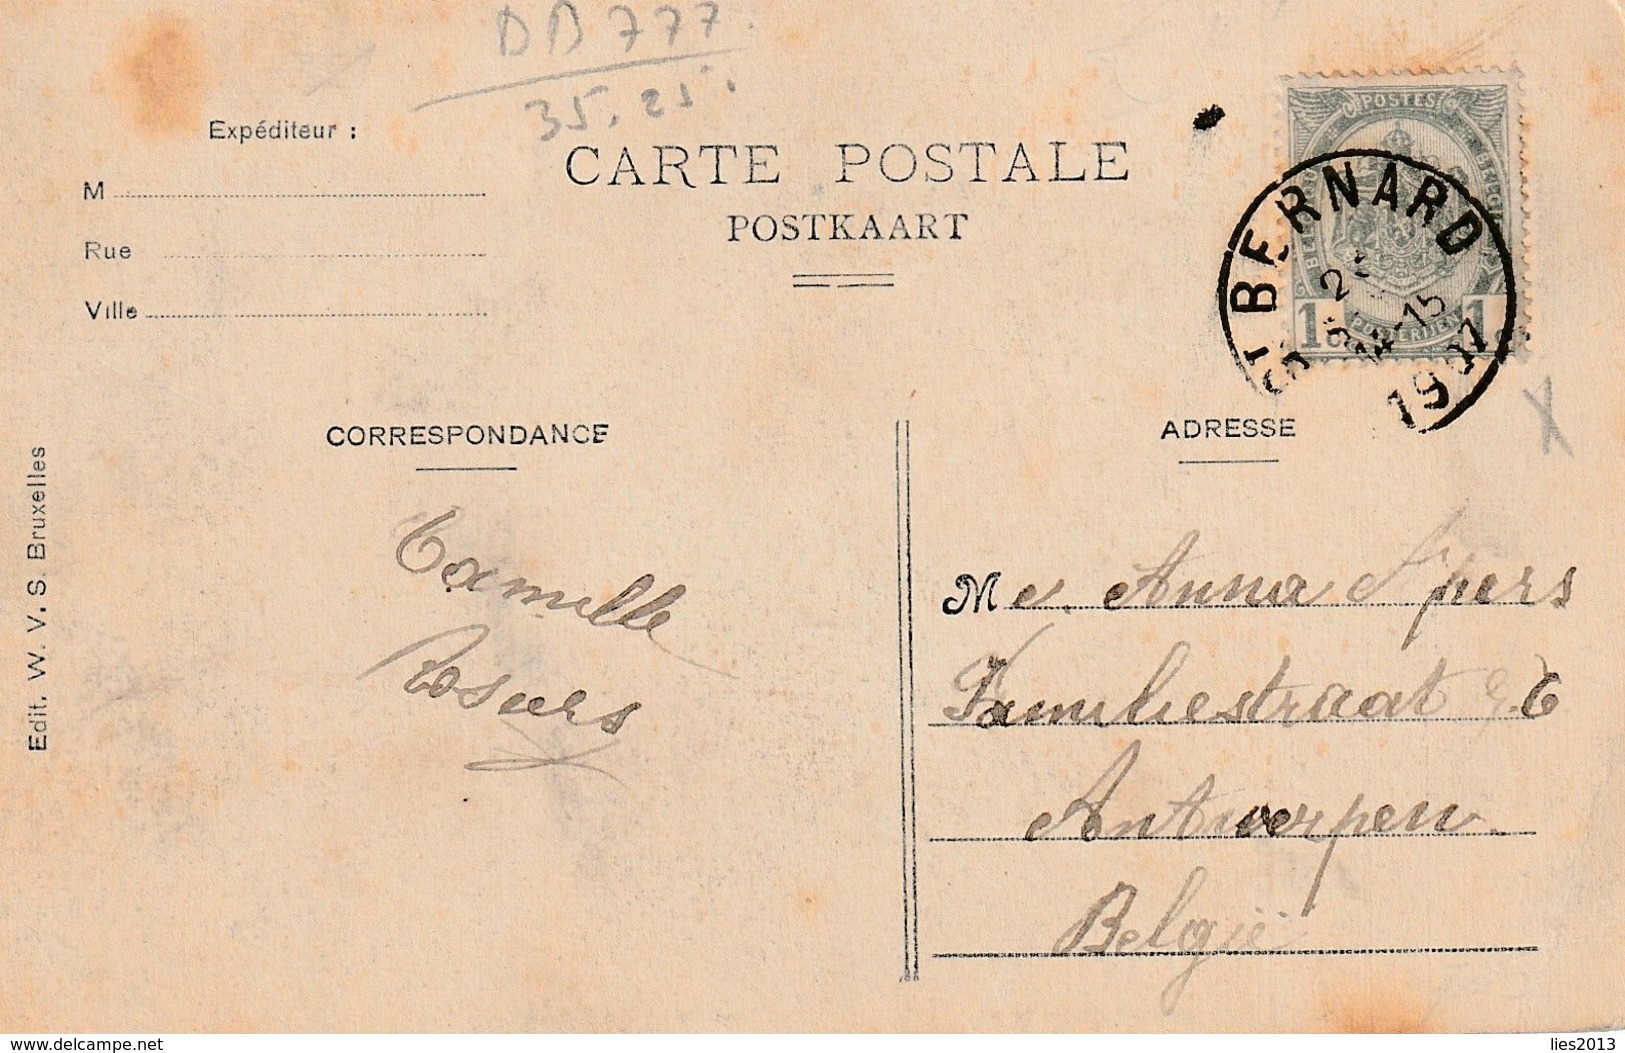 BB 777
35, 25.
Expéditeur :
M
Rue
Ville
CARTE POSTALE
POSTKAART
POSTES
POSTERIJEN
1c 1c
ST BERNARD
14-15
1907
CORRESPONDANCE
ADRESSE
Edit. W. V. S. Bruxelles
Camille
Rosiers
Me. Anna Spers
Familiestraat 6
Antwerpen
België
delcampe.net
lies2013